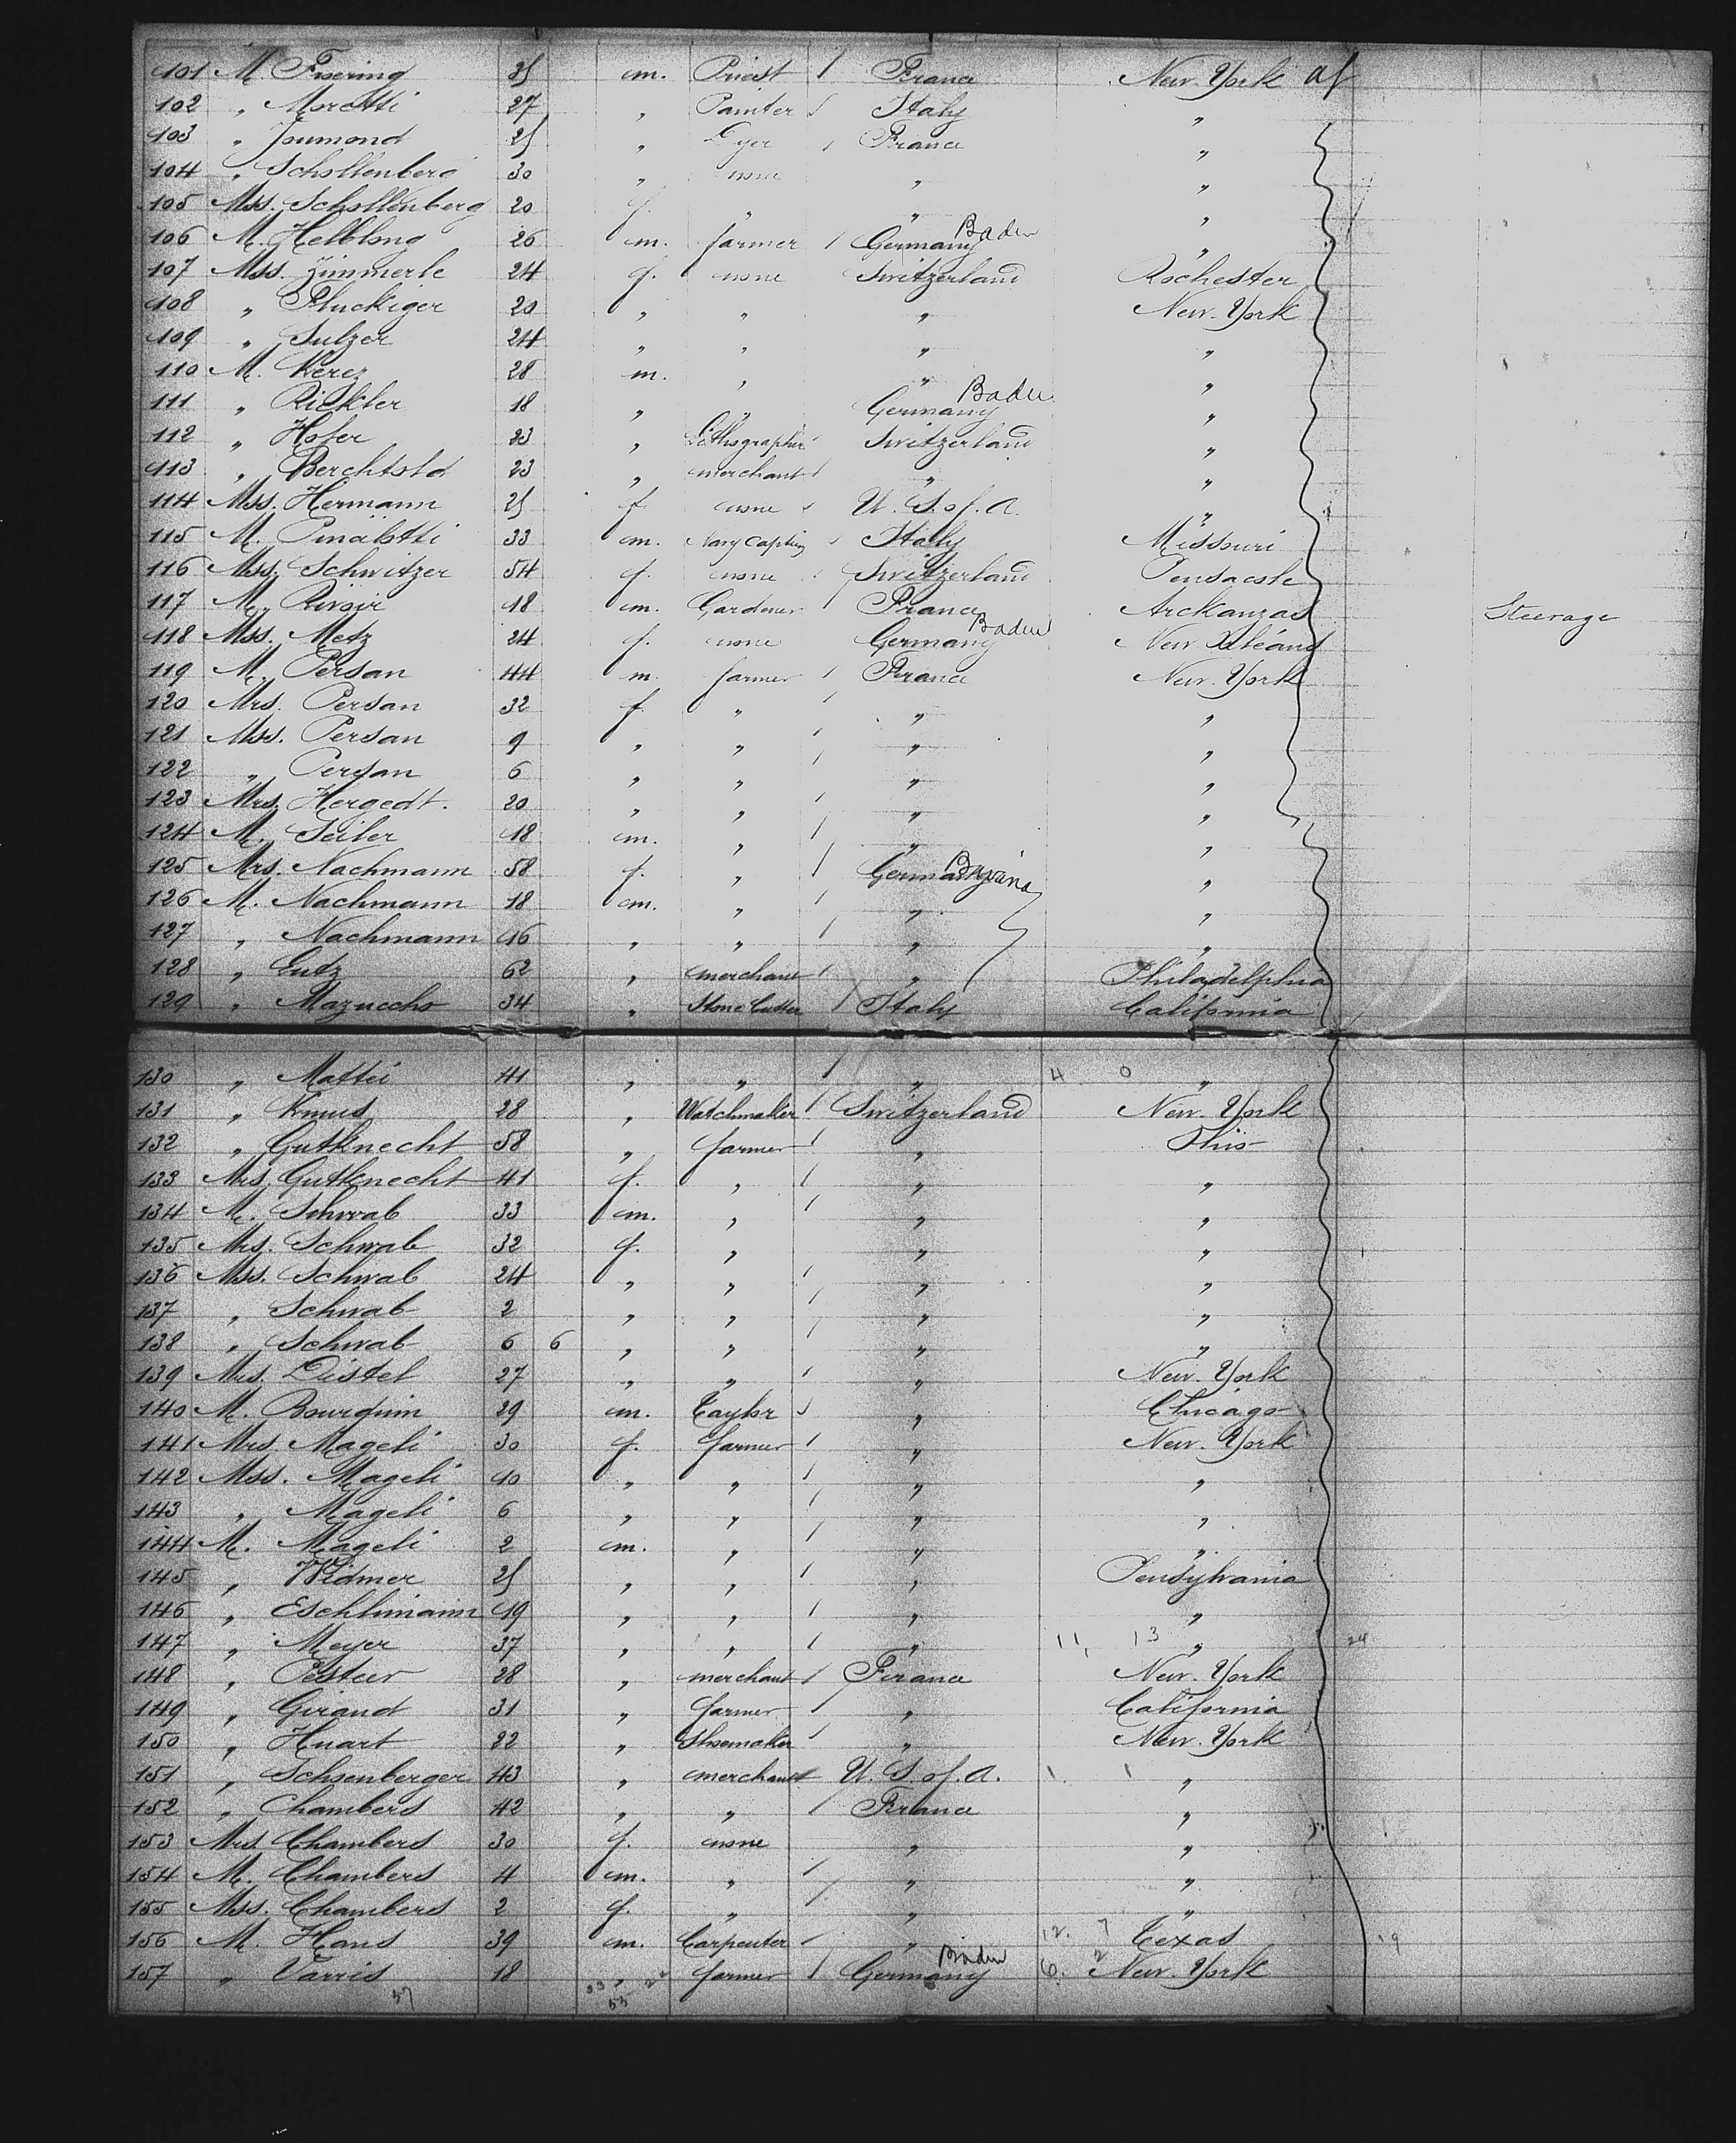 101 M Fisering 25 m. Priest / France New-York af
102 " Moretti 27 " Painter / Italy "
103 " Joumond 25 " Dyer / France "
104 " Schollenberg 30 " none " "
105 Mss. Schollenberg 20 f. " " "
106 M. Helblong 26 m. farmer / Germany Baden "
107 Mss. Zimmerle 24 f. none Switzerland Rochester
108 " Fluckiger 20 " " " New-York
109 " Sulzer 24 " " " "
110 M. Kerez 28 m. " " "
111 " Rickler 18 " " Germany Baden "
112 " Hofer 23 " Lithographer Switzerland "
113 " Berchtold 23 " merchant / " "
114 Mss. Hermann 25 f none U. S. of. A. "
115 M. Pinalotti 33 m. Navy Captain Italy Missouri
116 Mss. Schwitzer 54 f. none Switzerland Pensacole
117 M. Rivoir 18 m. Gardener / France Arckanzas Steerage
118 Mss. Metz 24 f. none Germany Baden New Orléans
119 M. Persan 44 m farmer / France New-York
120 Mrs. Persan 32 f " / " "
121 Mss. Persan 9 " " / " "
122 " Persan 6 " " / " "
123 Mrs. Hergedt. 20 " " / " "
124 M. Seiler 18 m. " / " "
125 Mrs. Nachmann 58 f. " / Germany Bavaria "
126 M. Nachmann 18 m. " / " "
127 " Nachmann 16 " " / " "
128 " Lutz 62 " merchant / " Philadelphia
129 " Mazuccho 34 " Stone Cutter / Italy California
130 " Mattei 41 " " / " 4 0 "
131 " Knus 28 " Watchmaker / Switzerland New-York
132 " Gutknecht 58 " farmer / " Ohio
133 Mrs. Gutknecht 41 f. " / " "
134 M. Schwab 33 m. " / " "
135 Mrs. Schwab 32 f. " " "
136 Mss. Schwab 24 " " / " "
137 " Schwab 2 " " / " "
138 " Schwab 6 6 " " / " "
139 Mrs. Distel 27 " " / " New-York
140 M. Bourquin 29 m. Taylor / " Chicago
141 Mrs. Mageli 30 f. farmer / " New-York
142 Mss. Mageli 10 " " / " "
143 " Mageli 6 " " / " "
144 M. Mageli 2 m. " / " "
145 " Widmer 25 " " / " Pensylvania
146 " Eschlimann 19 " " / " "
147 " Meyer 37 " " / " 11, 13 " 24
148 " Pesteer 28 " merchant / France New-York
149 " Girand 31 " farmer / " California
150 " Huart 22 " Shoemaker / " New-York
151 " Schsenberger 43 " merchant U. S. of. A. 1. 1 "
152 " Chambers 42 " " / France "
153 Mrs. Chambers 30 f. none " "
154 M. Chambers 4 m. " / " "
155 Mss. Chambers 2 f. " / " "
156 M. Hans 39 m. Carpenter / " 12. 7 Texas 19
157 " Varris 18 " farmer / Germany Baden 6. 2 New-York
57 33 22
55